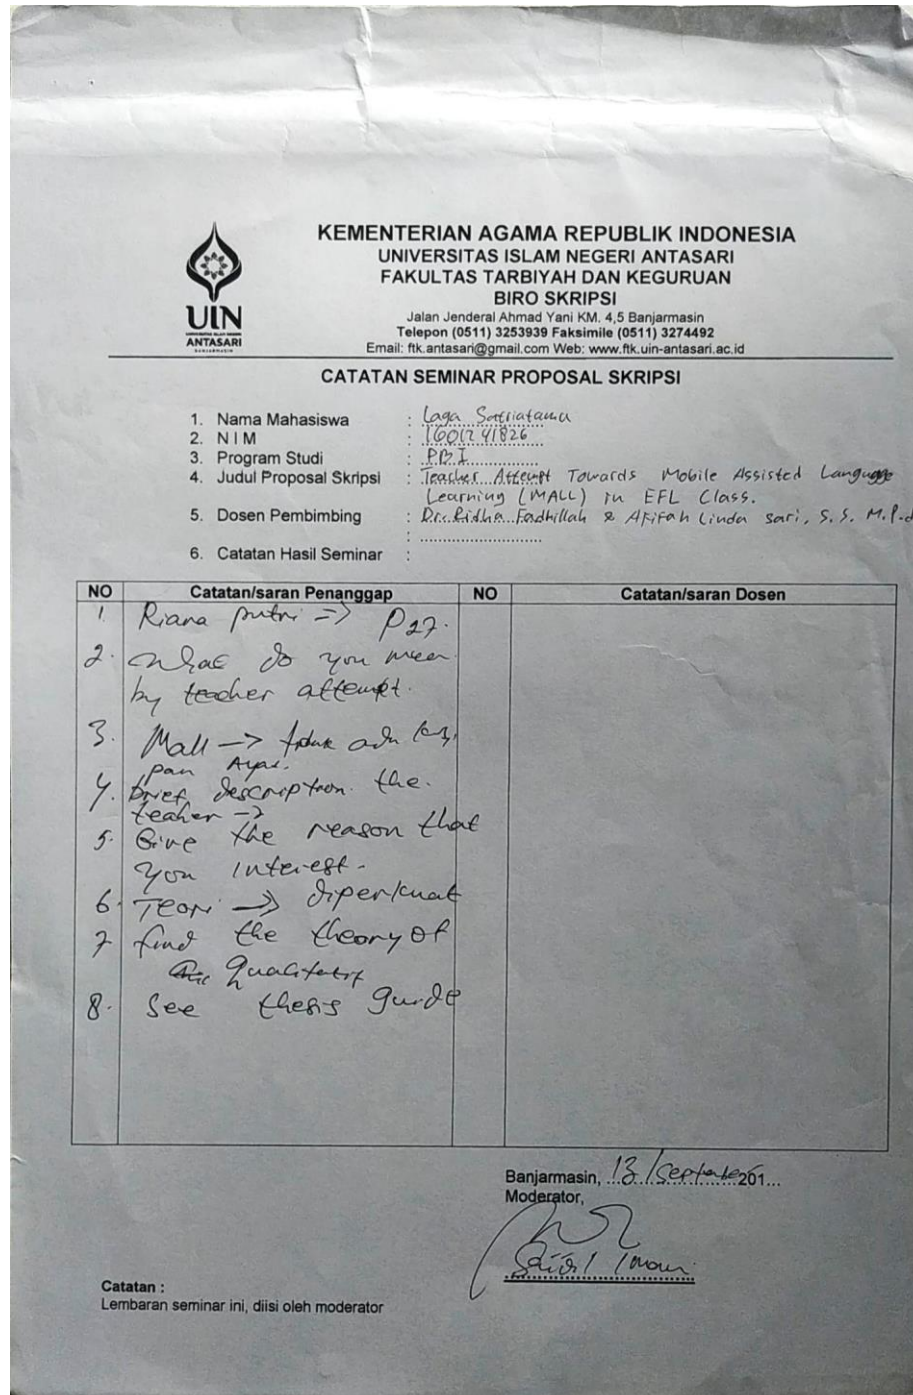 KEMENTERIAN AGAMA REPUBLIK INDONESIA
UNIVERSITAS ISLAM NEGERI ANTASARI
FAKULTAS TARBIYAH DAN KEGURUAN
BIRO SKRIPSI
Jalan Jenderal Ahmad Yani KM. 4,5 Banjarmasin
Telepon (0511) 3253939 Faksimile (0511) 3274492
Email: ftk.antasari@gmail.com Web: www.ftk.uin-antasari.ac.id
UIN
ANTASARI
CATATAN SEMINAR PROPOSAL SKRIPSI
1. Nama Mahasiswa : Laga Satriatama
2. N I M : 1601241826
3. Program Studi : PBI
4. Judul Proposal Skripsi : Teacher Attempt Towards Mobile Assisted Language
Learning (MALL) in EFL Class.
5. Dosen Pembimbing : Dr. Ridha Fadhillah & Afifah Linda Sari, S.S. M.P.d
:
6. Catatan Hasil Seminar :
NO Catatan/saran Penanggap NO Catatan/saran Dosen
1 Riana putri => P27.
2. What do you mean
by teacher attempt.
3. Mall ->
4. brief description the.
teaher ->
5. Give the reason that
you interest.
6. Teori -> diperkuat
7 find the theory of
qualitatif
8. See thesis guide
Banjarmasin, 13/September 201...
Moderator,
Imam
Catatan :
Lembaran seminar ini, diisi oleh moderator